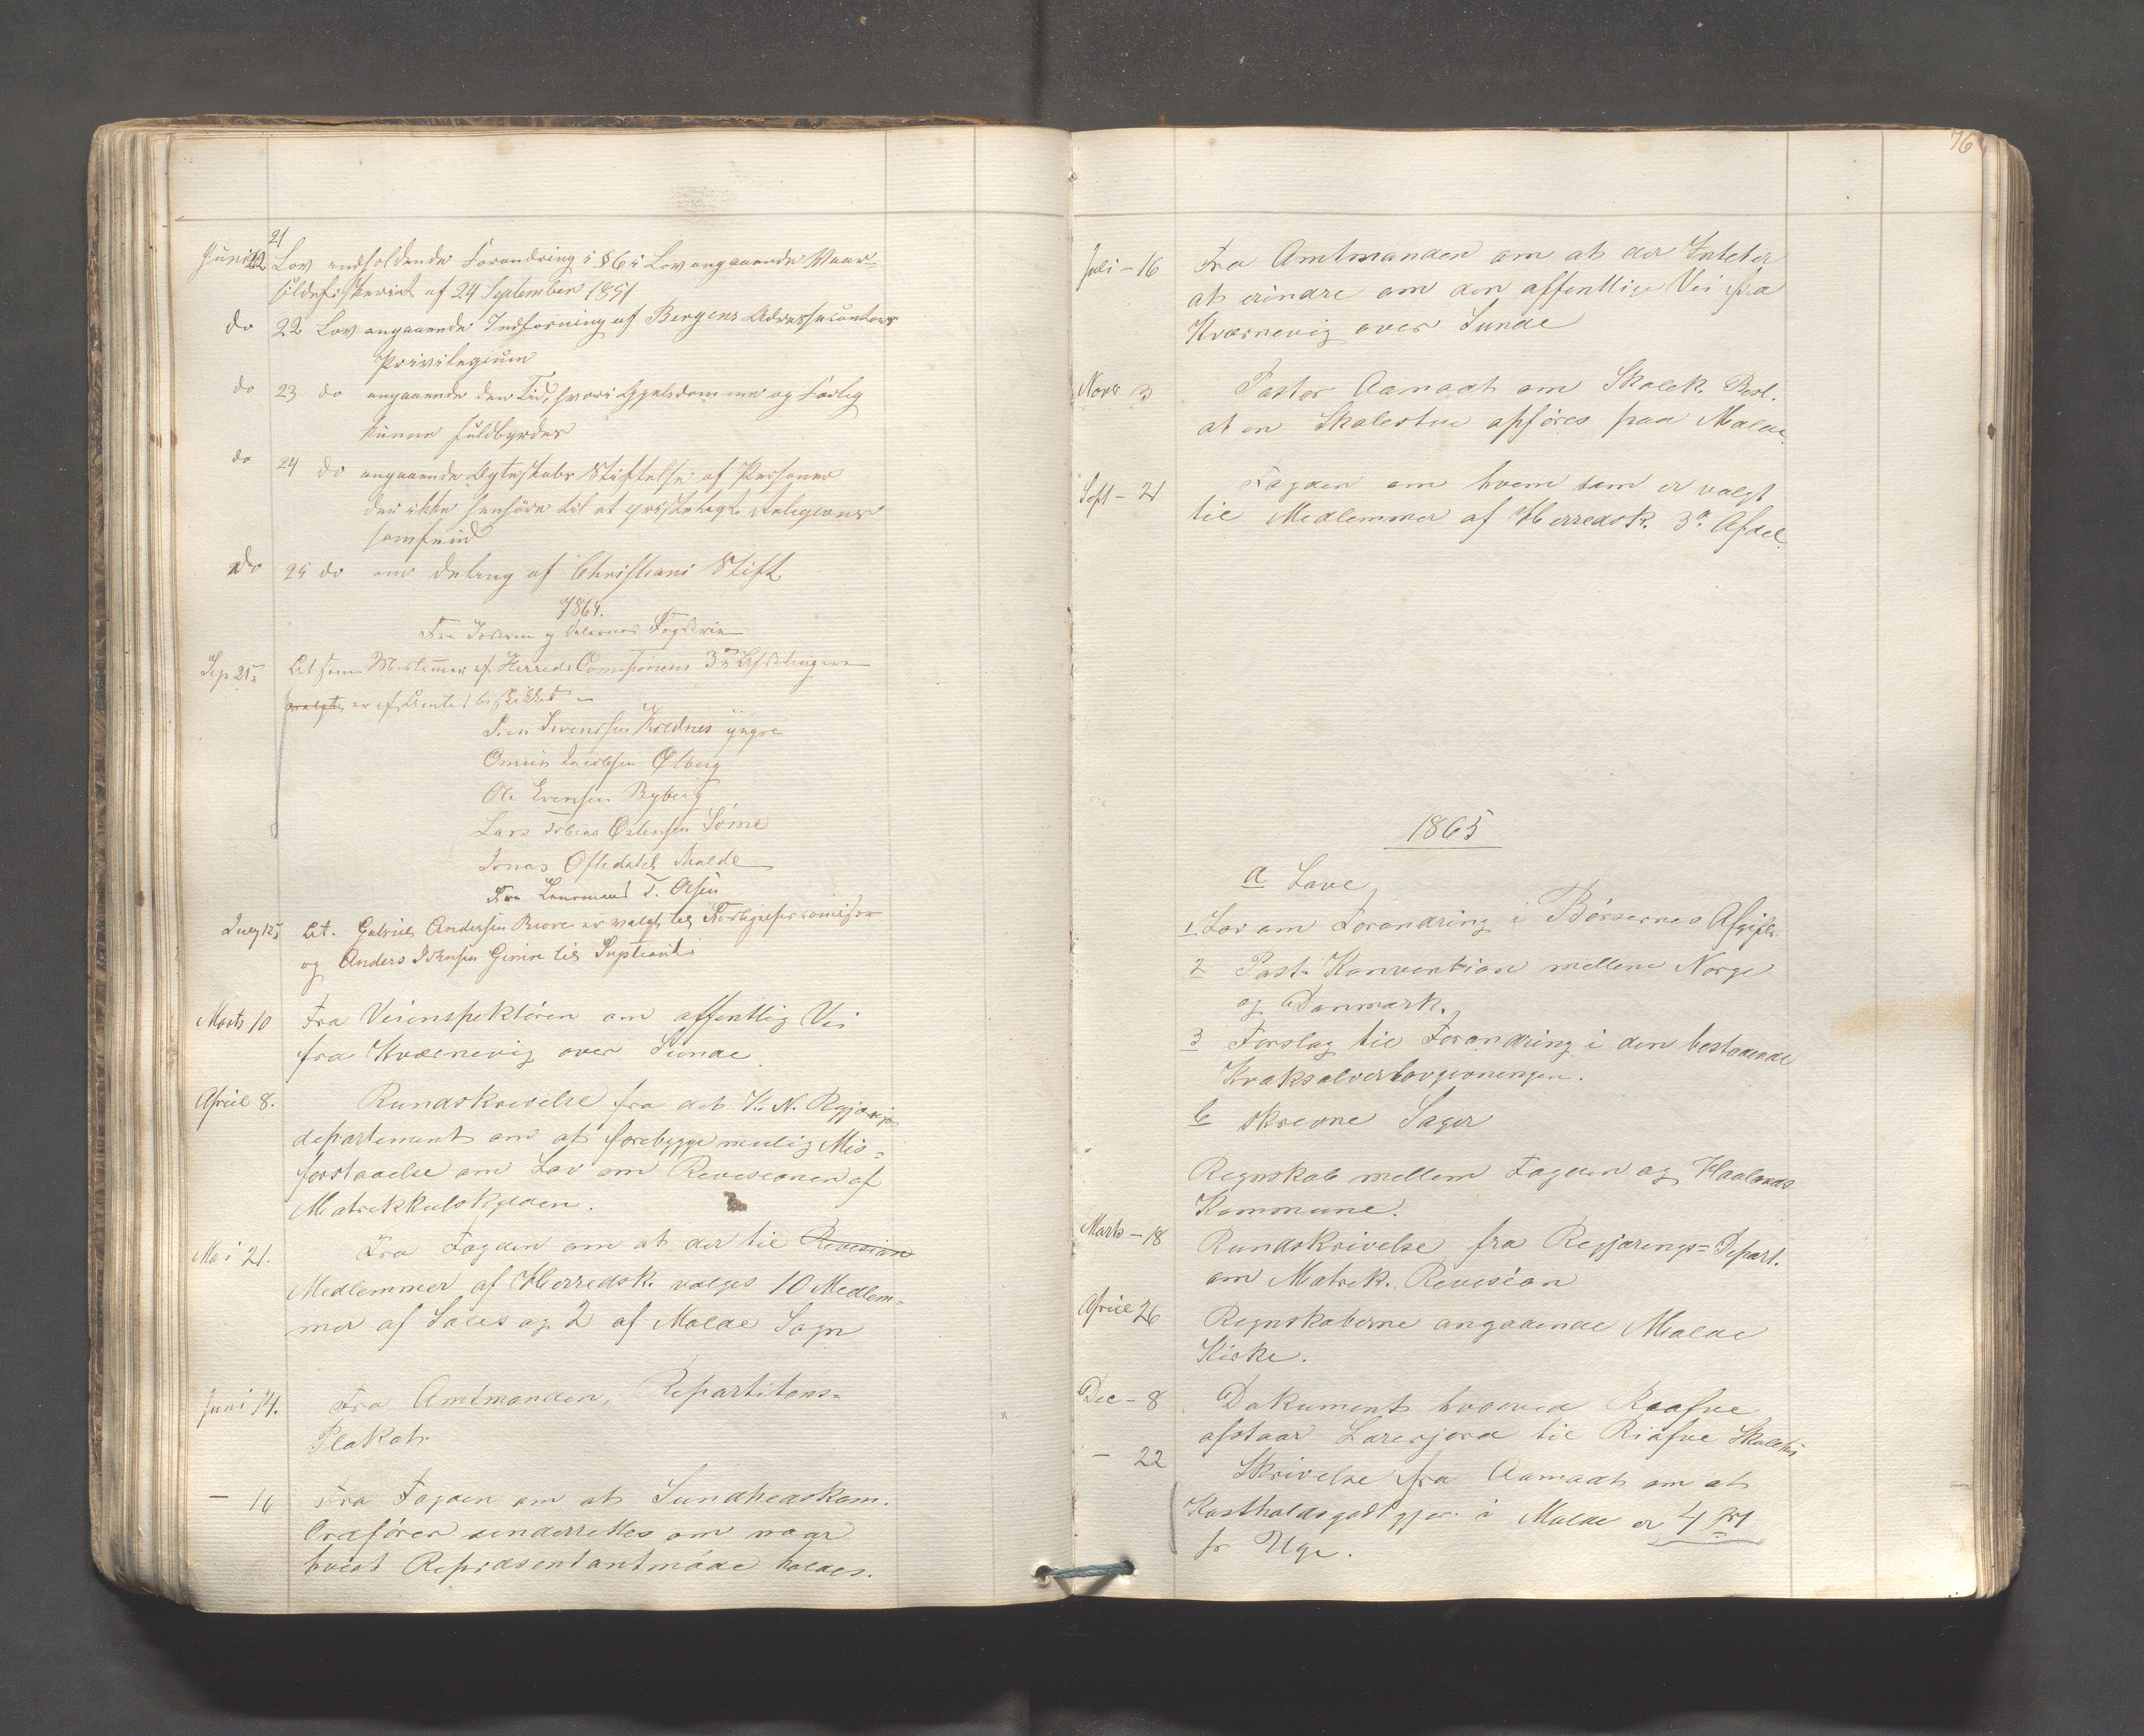 21
Juni 12 Lov indholdende Forandring i § 6 i Lov angaaende Vaar-
sildefiskeriet af 24 September 1851
do 22 Lov angaaende Indløsning af Bergens Adressecontoirs
Privilegium
do 23 do angaaende den Tid, hvori Egtedomme og Forlig
kunne fuldbyrdes
do 24 do angaaende Ægteskabs Stiftelse af Personer
der ikke henhøre til et christeligt Religions
samfund
do 25 do om Deling af Christiani Stift
1864.
Fra Jæderen og Dalernes Fogderie
Sep 21 At som Medlemmer af Herreds Comissionens 3die Afdeling ere
valgte er af Amtet beskikket
Svendsen Krednes yngre
Jacobsen Ølberg
Ole Evensen Ryberg
Lars Tobias Østensen Sømme
Jonas Ofledahl Malde
Fra Lensmand T. Olsen
At Gabriel Andersen Reove er valgt til Forligelsescomissær
og Anders Johnsen Gimre til Supleant
Marts 10 Fra Veiinspektøren om offentlig Vei
fra Kværnevig over Sunde
Apriel 8. Rundskrivelse fra det K. N. Regjerings
departement om at forebygge mulig Mis-
forstaaelse om Lov om Revisionen af
Matrikkulskylden.
Mai 21. Fra Fogden om at der til Revision
Medlemmer af Herredsk. valges 10 Medlem-
mer af Soles og 2 af Malde Sogn
Juni 14. Fra Amtmanden, Repartitons-
Plakat.
— 16 Fra Fogden om at Sundhedskom.
Ordfører underrettes om naar
hvert Repræsentantmøde holdes.
76
Juli - 16 Fra Amtmanden om at der Intet er
at erindre om den offentlige Vei fra
Kværnevig over Sunde
Novr 3 Pastor Aamodt om Skolek. Besl.
at en Skolestue opføres paa Malde
Sept - 21 Fogden om hvem som er valgt
til Medlemmer af Herredsk. 3a Afdel.
1865
a Love
1 Lov om Forandring i Børsernes Afgifter
2 Post-Konvention mellem Norge
og Danmark.
3 Forslag til Forandring i den bestaaende
Kvaksalverlovgivningen.
b skrevne Sager
Regnskab mellem Fogden og Haalands
Kommune.
Marts - 18 Rundskrivelse fra Regjerings-Depart.
om Matrik. Revision
Apriel 26 Regnskaberne angaaende Malde
Kirke.
Dec - 8 Dokument hvorved Raafve
afstaar Lærerjord til Riafve
— 22 Skrivelse fra Aamodt om at
Kostholdsgodtgjør. i Malde er 4
pr Uge.